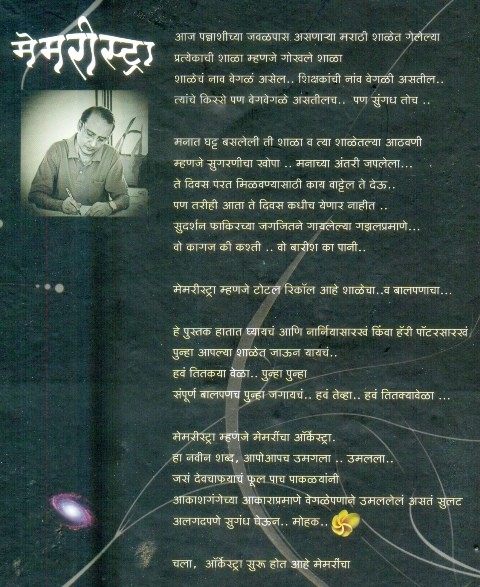 मेमरीस्ट्रा
आज पन्नाशीच्या जवळपास असणाऱ्या मराठी शाळेत गेलेल्या
प्रत्येकाची शाळा म्हणजे गोखले शाळा
शाळेचं नाव वेगळं असेल.. शिक्षकांची नांव वेगळी असतील..
त्यांचे किस्से पण वेगवेगळे असतीलच.. पण सुंगध तोच ..
मनात घट्ट बसलेली ती शाळा व त्या शाळेतल्या आठवणी
म्हणजे सुगरणीचा खोपा .. मनाच्या अंतरी जपलेला...
ते दिवस परत मिळवण्यासाठी काय वाट्टेल ते देऊ..
पण तरीही आता ते दिवस कधीच येणार नाहीत ..
सुदर्शन फाकिरच्या जगजितने गायलेल्या गझलप्रमाणे...
वो कागज की कश्ती .. वो बारीश का पानी..
मेमरीस्ट्रा म्हणजे टोटल रिकॉल आहे शाळेचा..व बालपणाचा...
हे पुस्तक हातात घ्यायचं आणि नार्नियासारखं किंवा हॅरी पॉटरसारखं
पुन्हा आपल्या शाळेत जाऊन यायचं..
हवं तितकया वेळा.. पुन्हा पुन्हा
संपूर्ण बालपणच पुन्हा जगायचं.. हवं तेव्हा.. हवं तितक्यावेळा ...
मेमरीस्ट्रा म्हणजे मेमरींचा ऑर्केस्ट्रा.
हा नवीन शब्द, आपोआपच उमगला .. उमलला..
जसं देवचाफ्याचं फूल पाच पाकळयांनी
आकाशगंगेच्या आकाराप्रमाणे वेगळेपणाने उमललेलं असतं सुलट
अलगदपणे सुगंध घेऊन.. मोहक..
चला, ऑर्केस्ट्रा सुरू होत आहे मेमरींचा